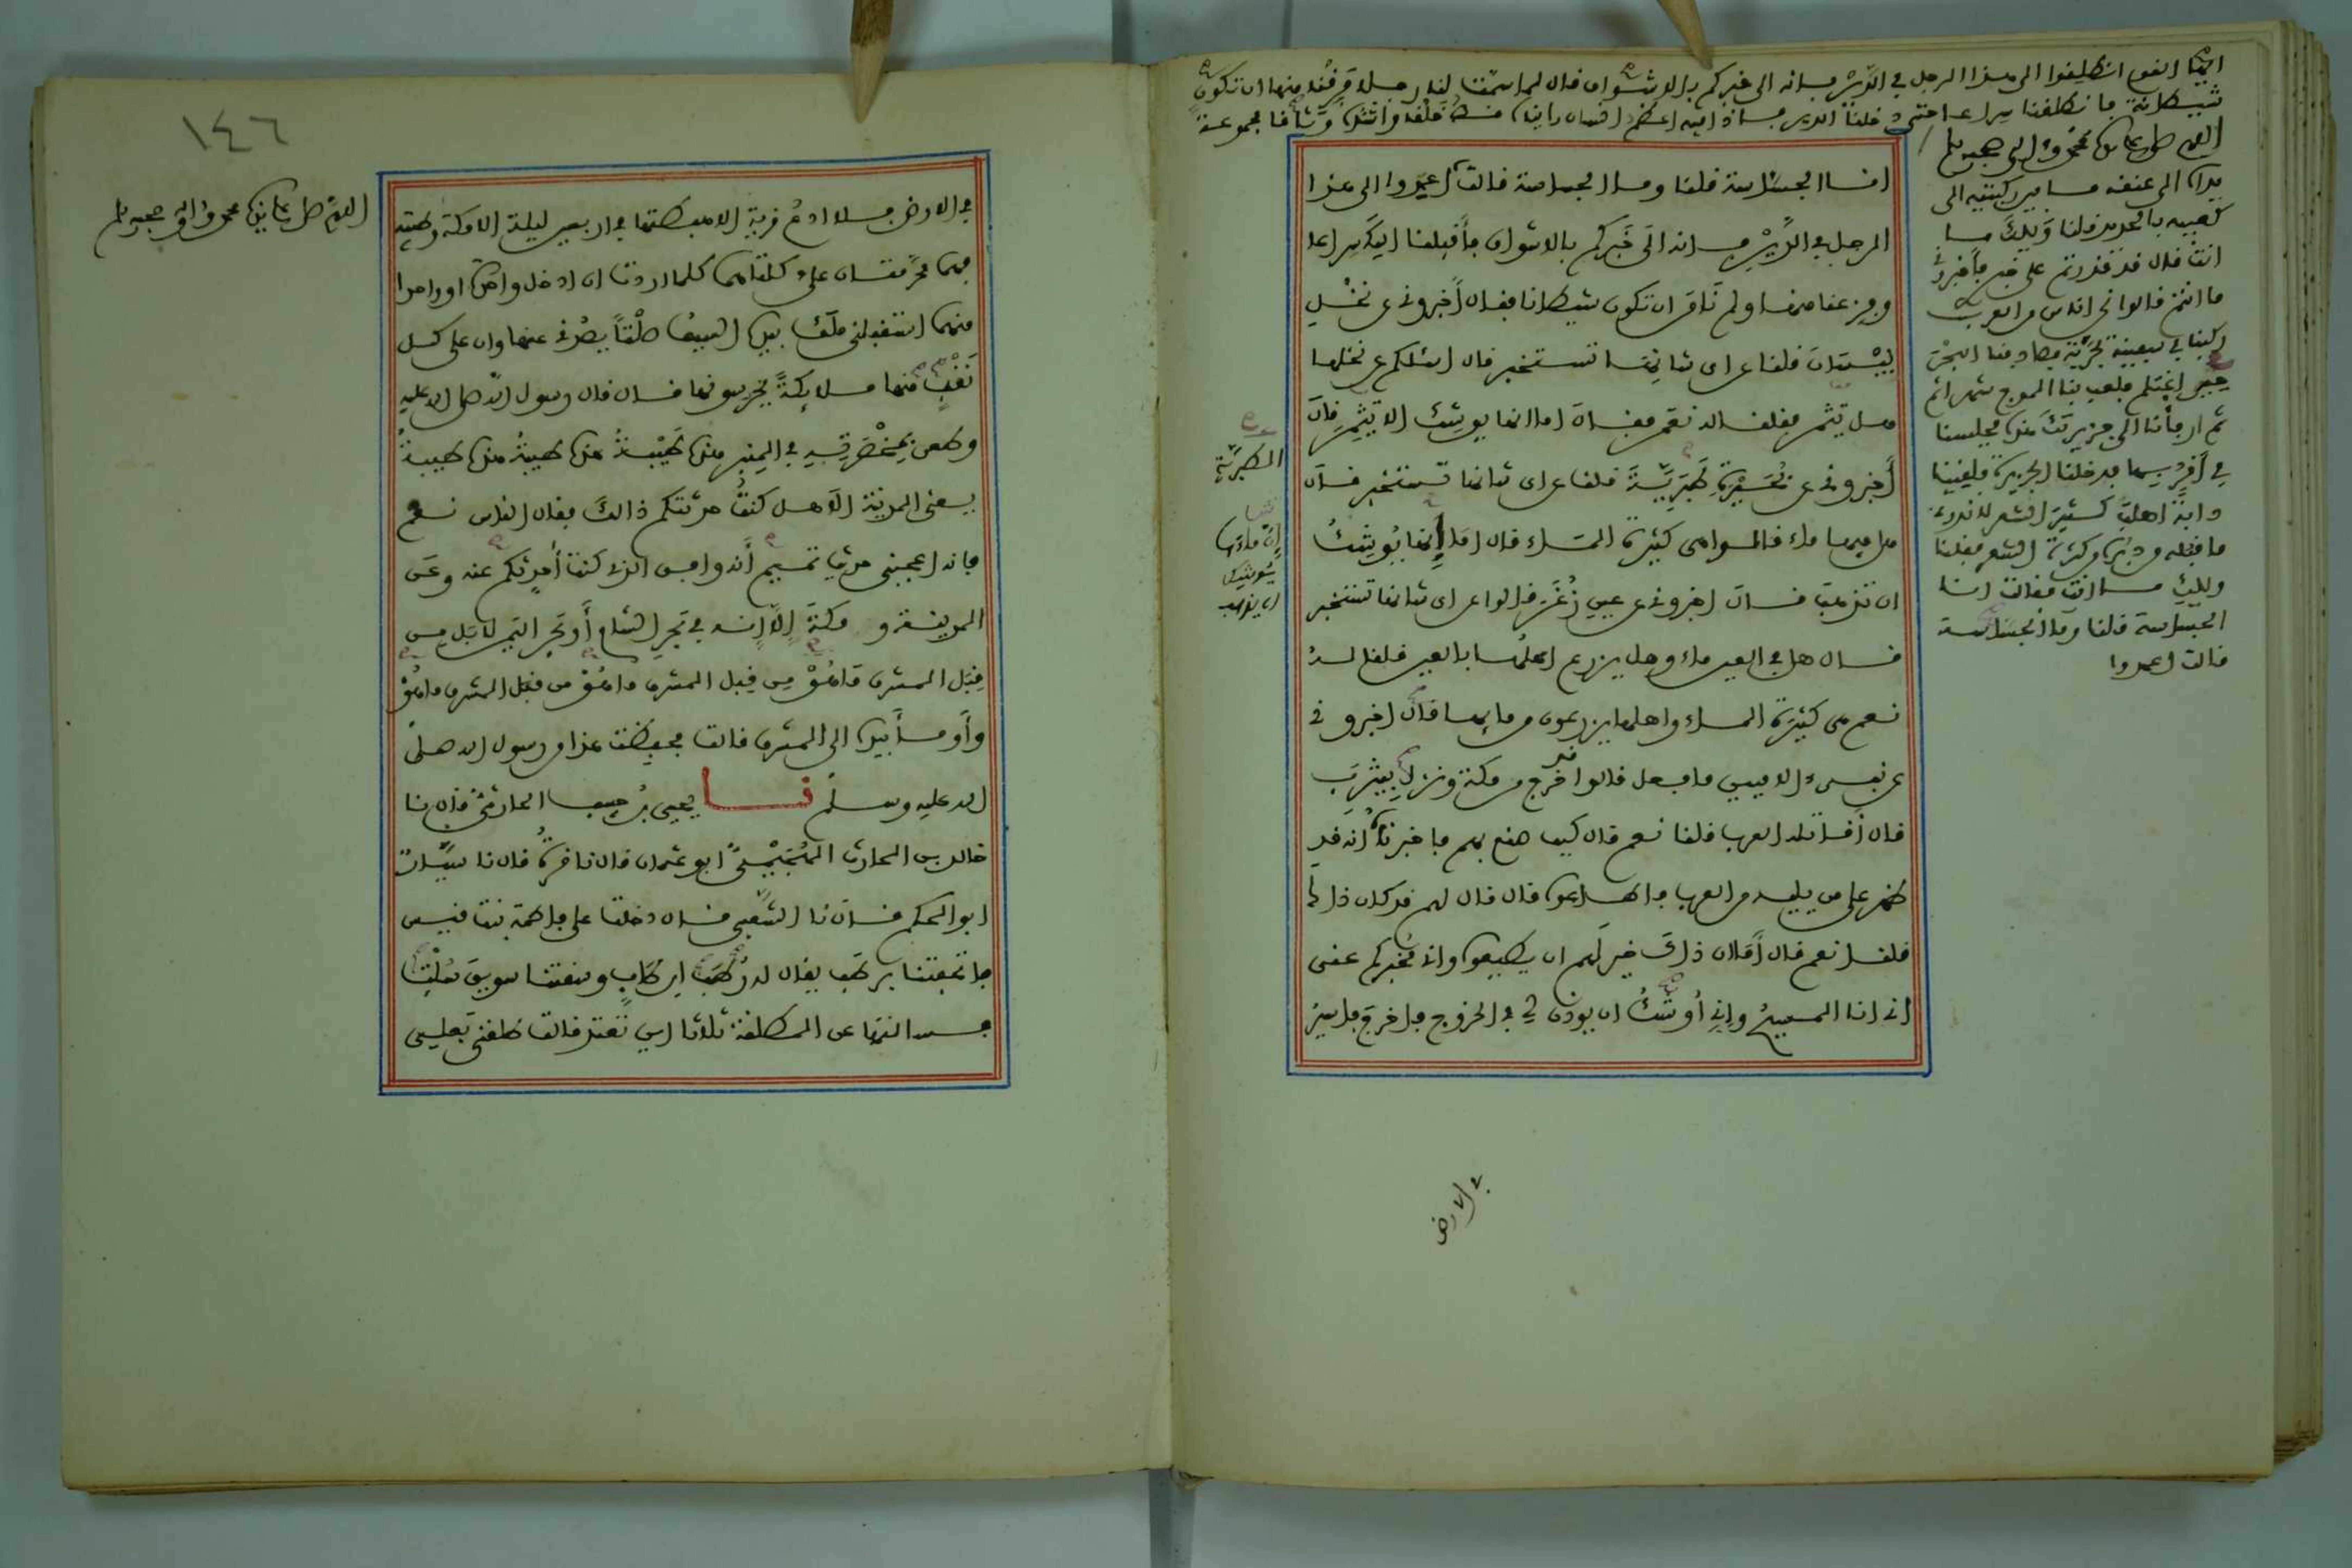 ايها القوم انطلقوا الى هذا الرجل في الدير فانه الى خبركم بالاشواق قال لما سمت لنا رجلا فرقنا منها ان تكون
شيطانة فانطلقنا سراعا حتى دخلنا الدير فاذا فيه اعظم انسان رايناه قط خلقا واشده وثاقا مجموعة
اللهم صل على سيدنا محمد وءاله وصحبه وسلم
يداه الى عنقه ما بين ركبتيه الى
كعبيه بالحديد قلنا ويلك ما
انت قال قد قدرتم على خبري فأخبروني
ما انتم قالوا نحن اناس من العرب
ركبنا في سفينة بحرية فصادفنا البحر
حين اغتلم فلعب بنا الموج شهرا ثم
ثم ارفأنا الى جزيرتك هذه فجلسنا
في أقربها فدخلنا الجزيرة فلقيتنا
دابة أهلب كثير الشعر لا ندري
ما قبله من دبره من كثرة الشعر فقلنا
ويلك ما انت فقالت انا
الجساسة قلنا وما الجساسة
قالت اعمدوا
انا الجساسة قلنا وما الجساسة قالت اعمدوا الى هذا
الرجل في الدير فانه الى خبركم بالاشواق فأقبلنا اليك سراعا
وفزعنا منها ولم نأمن ان تكون شيطانا فقال أخبروني عن نخل
بيسان قلنا عن اى شانها تستخبر قال اسئلكم عن نخلها
هل يثمر فقلنا له نعم فقال اما انها يوشك الا تثمر قال
أخبروني عن بحيرة طبرية قلنا عن اى شانها تستخبر قال
هل فيها ماء قالوا هى كثيرة الماء قال اما إن ماءها يوشك
ان تذهب قال اخبروني عن عين زغر قالوا عن اى شانها تستخبر
قال هل في العين ماء وهل يزرع اهلها بماء العين قلنا له
نعم هى كثيرة الماء واهلها يزرعون من مايها قال اخبروني
عن نبىء الاميين ما فعل قالوا قد خرج من مكة ونزل بيثرب
قال أقاتله العرب قلنا نعم قال كيف صنع بهم فاخبرناه انه قد
ظهر على من يليه من العرب واطاعوه قال قال لهم قد كان ذلك
قلنا نعم قال أما ان ذلك خير لهم ان يطيعوه وانى مخبركم عنى
انى انا المسيح وإنى أوشك ان يوذن لي في الخروج فاخرج فاسير
الطبرية
إن ماءها
يوشك
ان يذهب
في الارض
١٤٦
اللهم صل على سيدنا محمد وءاله وصحبه وسلم
في الارض فلا ادع قرية الا هبطتها في اربعين ليلة الا مكة وطيبة
فهما محرمتان علي كلتاهما كلما اردت ان ادخل واحدة او واحدا
منهما استقبلنى ملك بيده السيف صلتا يصدنى عنها وان على كل
نقب منها ملايكة يحرسونها قال قال رسول الله صلى الله عليه
وطعن بمخصرته في المنبر هذه طيبة هذه طيبة هذه طيبة
يعنى المدينة ألا هل كنت حدثتكم ذالك فقال الناس نعم
فإنه اعجبنى حديث تميم أنه وافق الذى كنت أحدثكم عنه وعن
المدينة و مكة إلا إنه في بحر الشام أو بحر اليمن لا بل من
قبل المشرق ما هو من قبل المشرق ما هو من قبل المشرق ما هو
وأومأ بيده الى المشرق قالت فحفظت هذا من رسول الله صلى
الله عليه وسلم نـــا يحيى بن حبيب الحارثي قال نا
خالد بن الحارث الهجيمي ابو عثمان قال نا قرة قال نا سيار
ابو الحكم قال نا الشعبي قال دخلنا على فاطمة بنت قيس
فاتحفتنا برطب يقال له رطب ابن طاب وسقتنا سويق سلت
فسالتها عن المطلقة ثلاثا اين تعتد قالت طلقنى بعلي